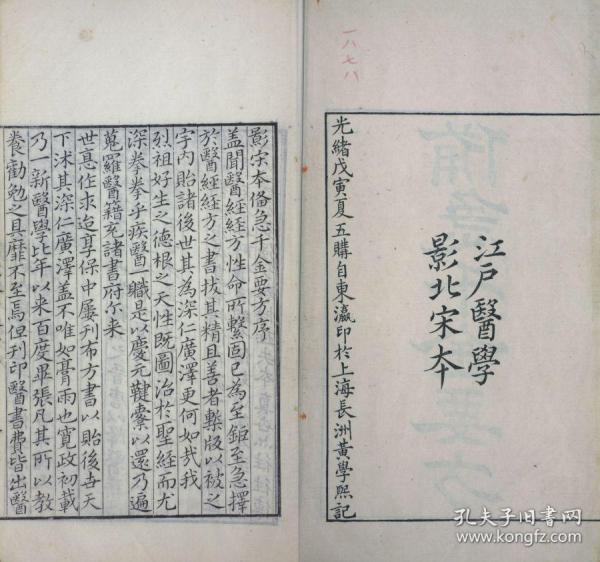 一八七八
江戶醫學
影北宋本
光緒戊寅夏五購自東瀛印於上海長洲黃學熙記
影宋本偹急千金要方序
盖聞醫經經方性命所繫固已為至鉅至急擇
於醫經經方之書拔其精且善者槧版以被之
宇内貽諸後世其為深仁廣澤更何如哉我
烈祖好生之德根之天性既圖治於聖經而尤
深拳拳乎疾醫一職是以慶元鞬櫜以還乃遍
蒐羅醫籍充諸書府尔来
世世悳作求迨享保中屢刊布方書以貽後世天
下沐其深仁廣澤盖不唯如膏雨也寬政初載
乃一新醫學比年以来百度畢張凡其所以教
養勸勉之具靡不至焉但刊印醫書費皆出醫
孔夫子旧书网
www.kongfz.com